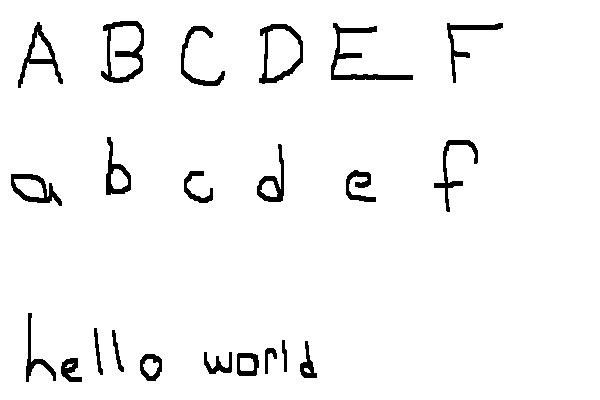 A B C D E F
a b c d e f
hello world